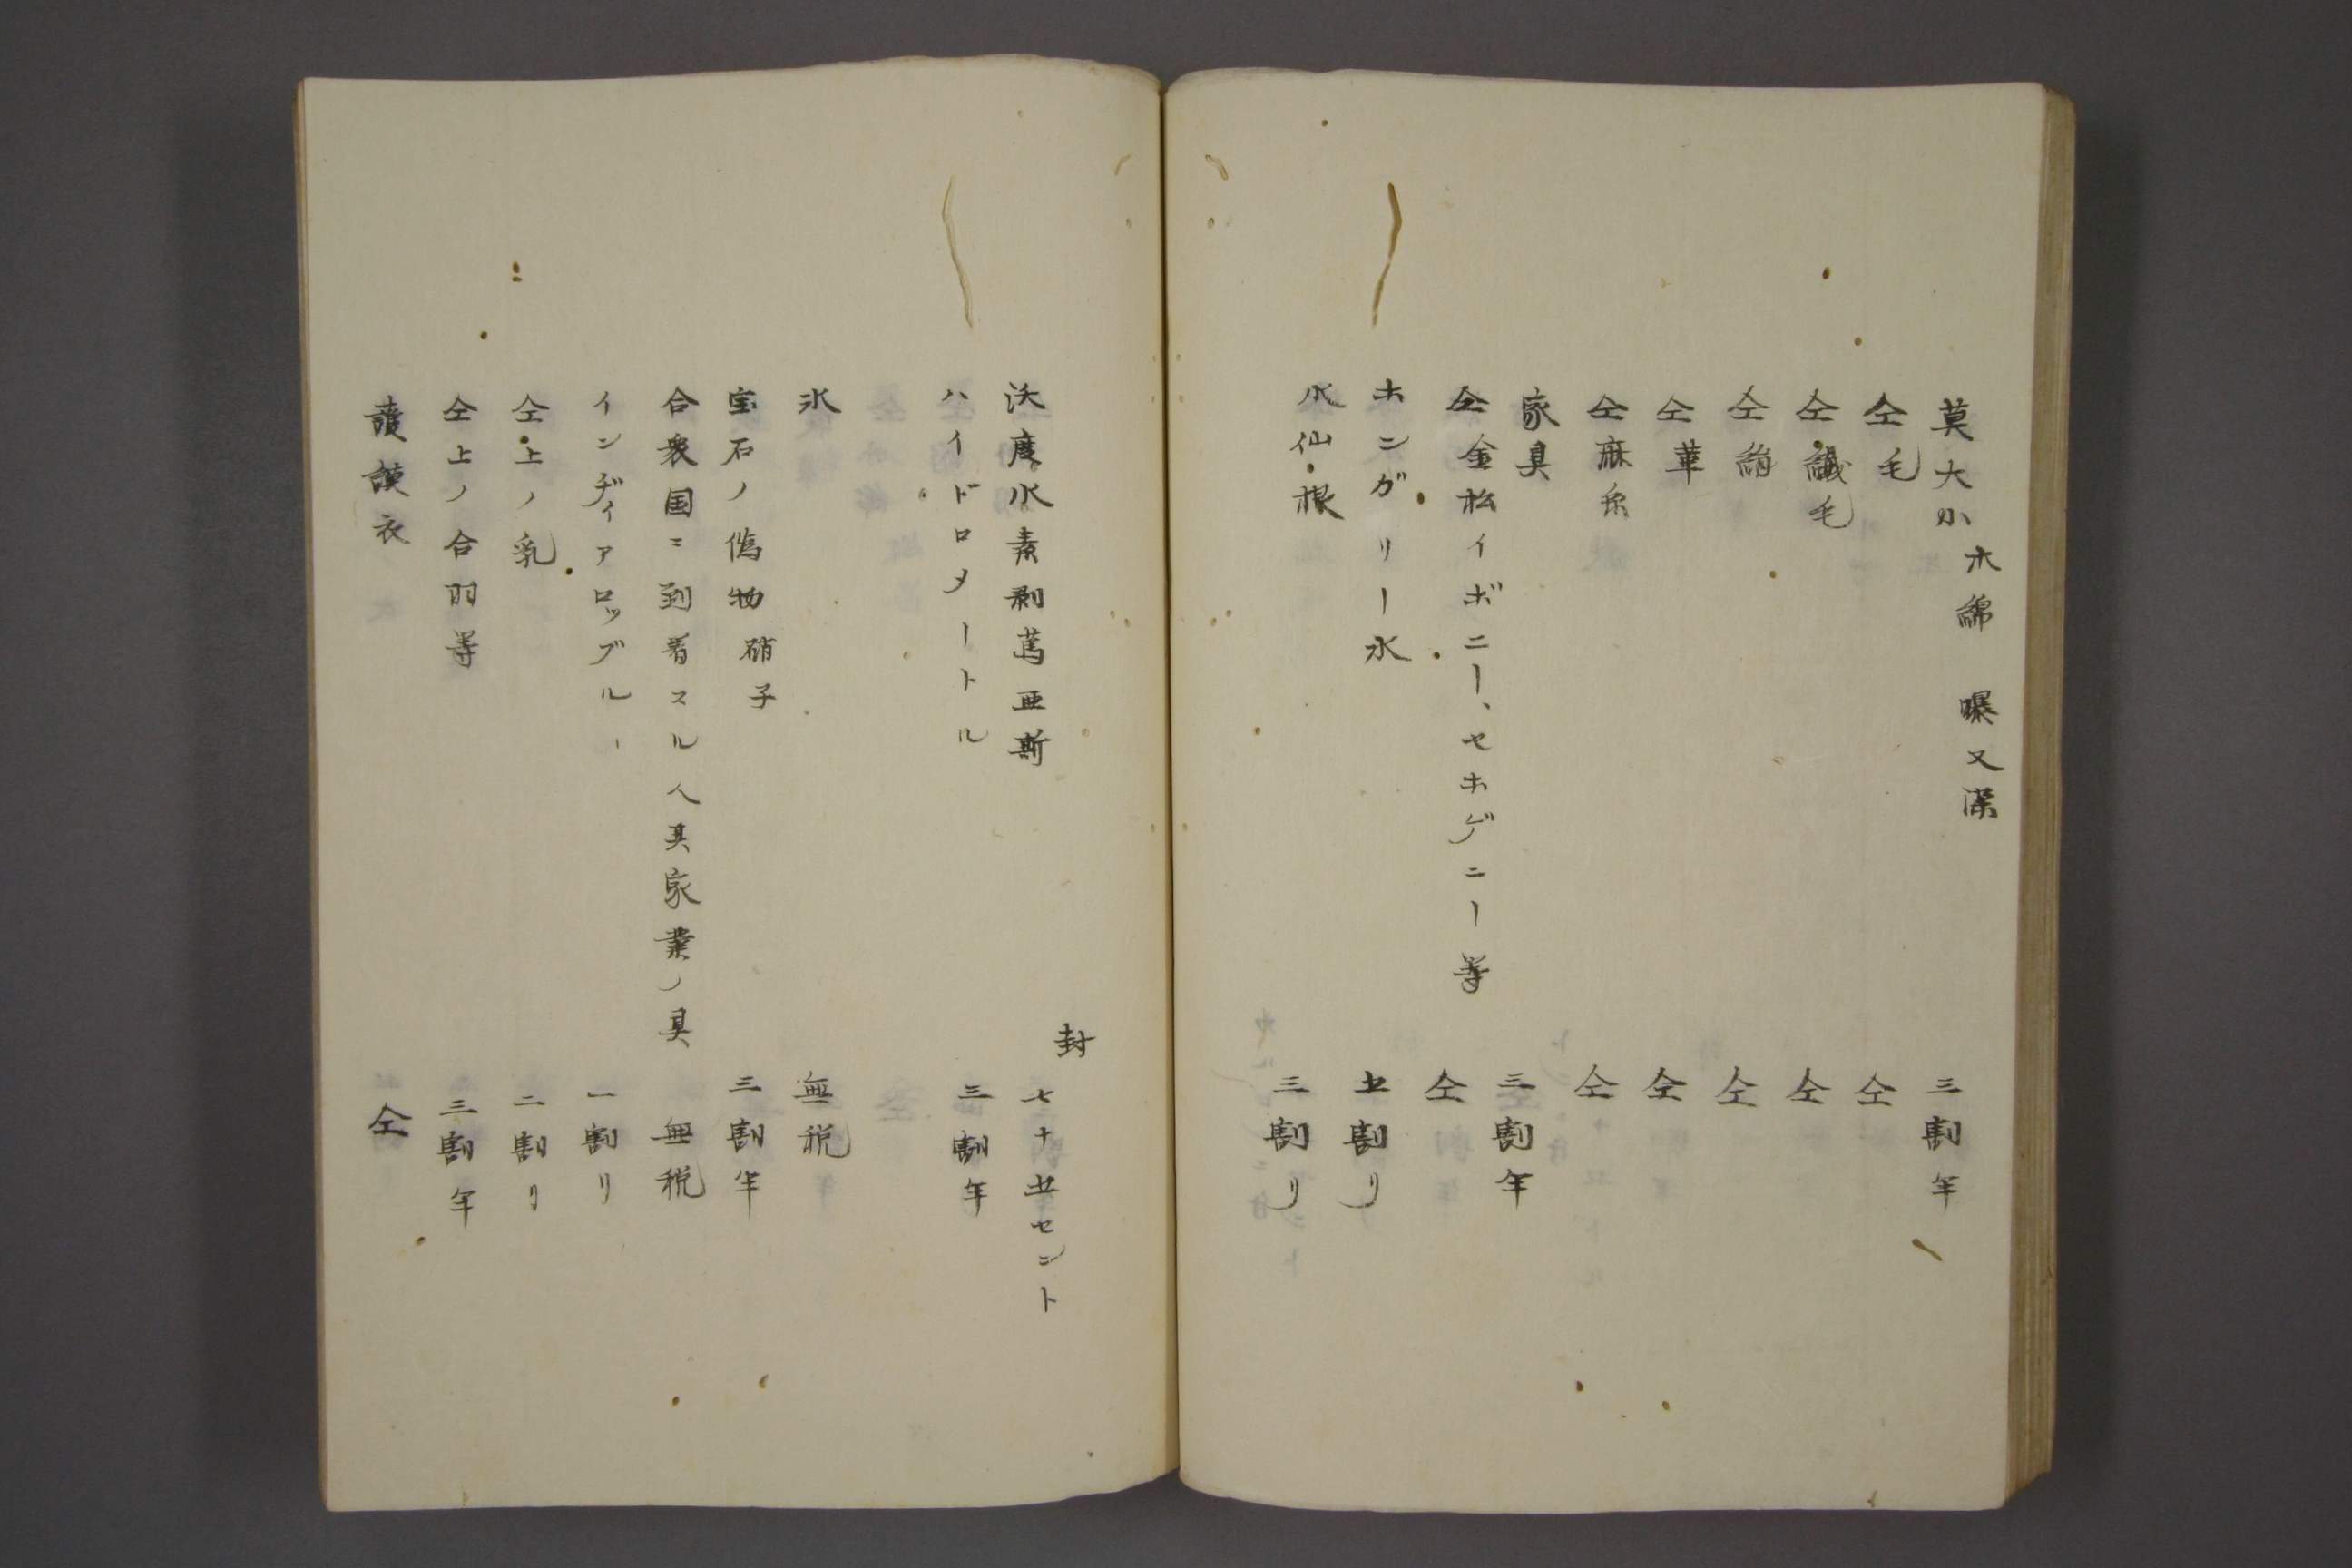 莫大小 木綿 曝又潔 三割半
仝毛 仝
仝繊毛 仝
仝絹 仝
仝革 仝
仝麻糸 仝
家具 三割半
仝金松イボニー、セホゲニー等 仝
ホンガリー水 五割リ
水仙根 三割リ
沃度水素剥篤亜斯 封 七十五セント
ハイドロメートル 三割半
氷 無税
宝石ノ偽物 硝子 三割半
合衆国ニ到着スル人其家業ノ具 無税
インヂィアロッブルー 一割リ
仝上ノ乳 二割リ
仝上ノ合羽等 三割半
護謨衣 仝